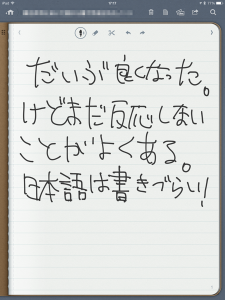 17:17
だいぶ良くなった。
けどまだ反応しない
ことがよくある。
日本語は書きづらい!